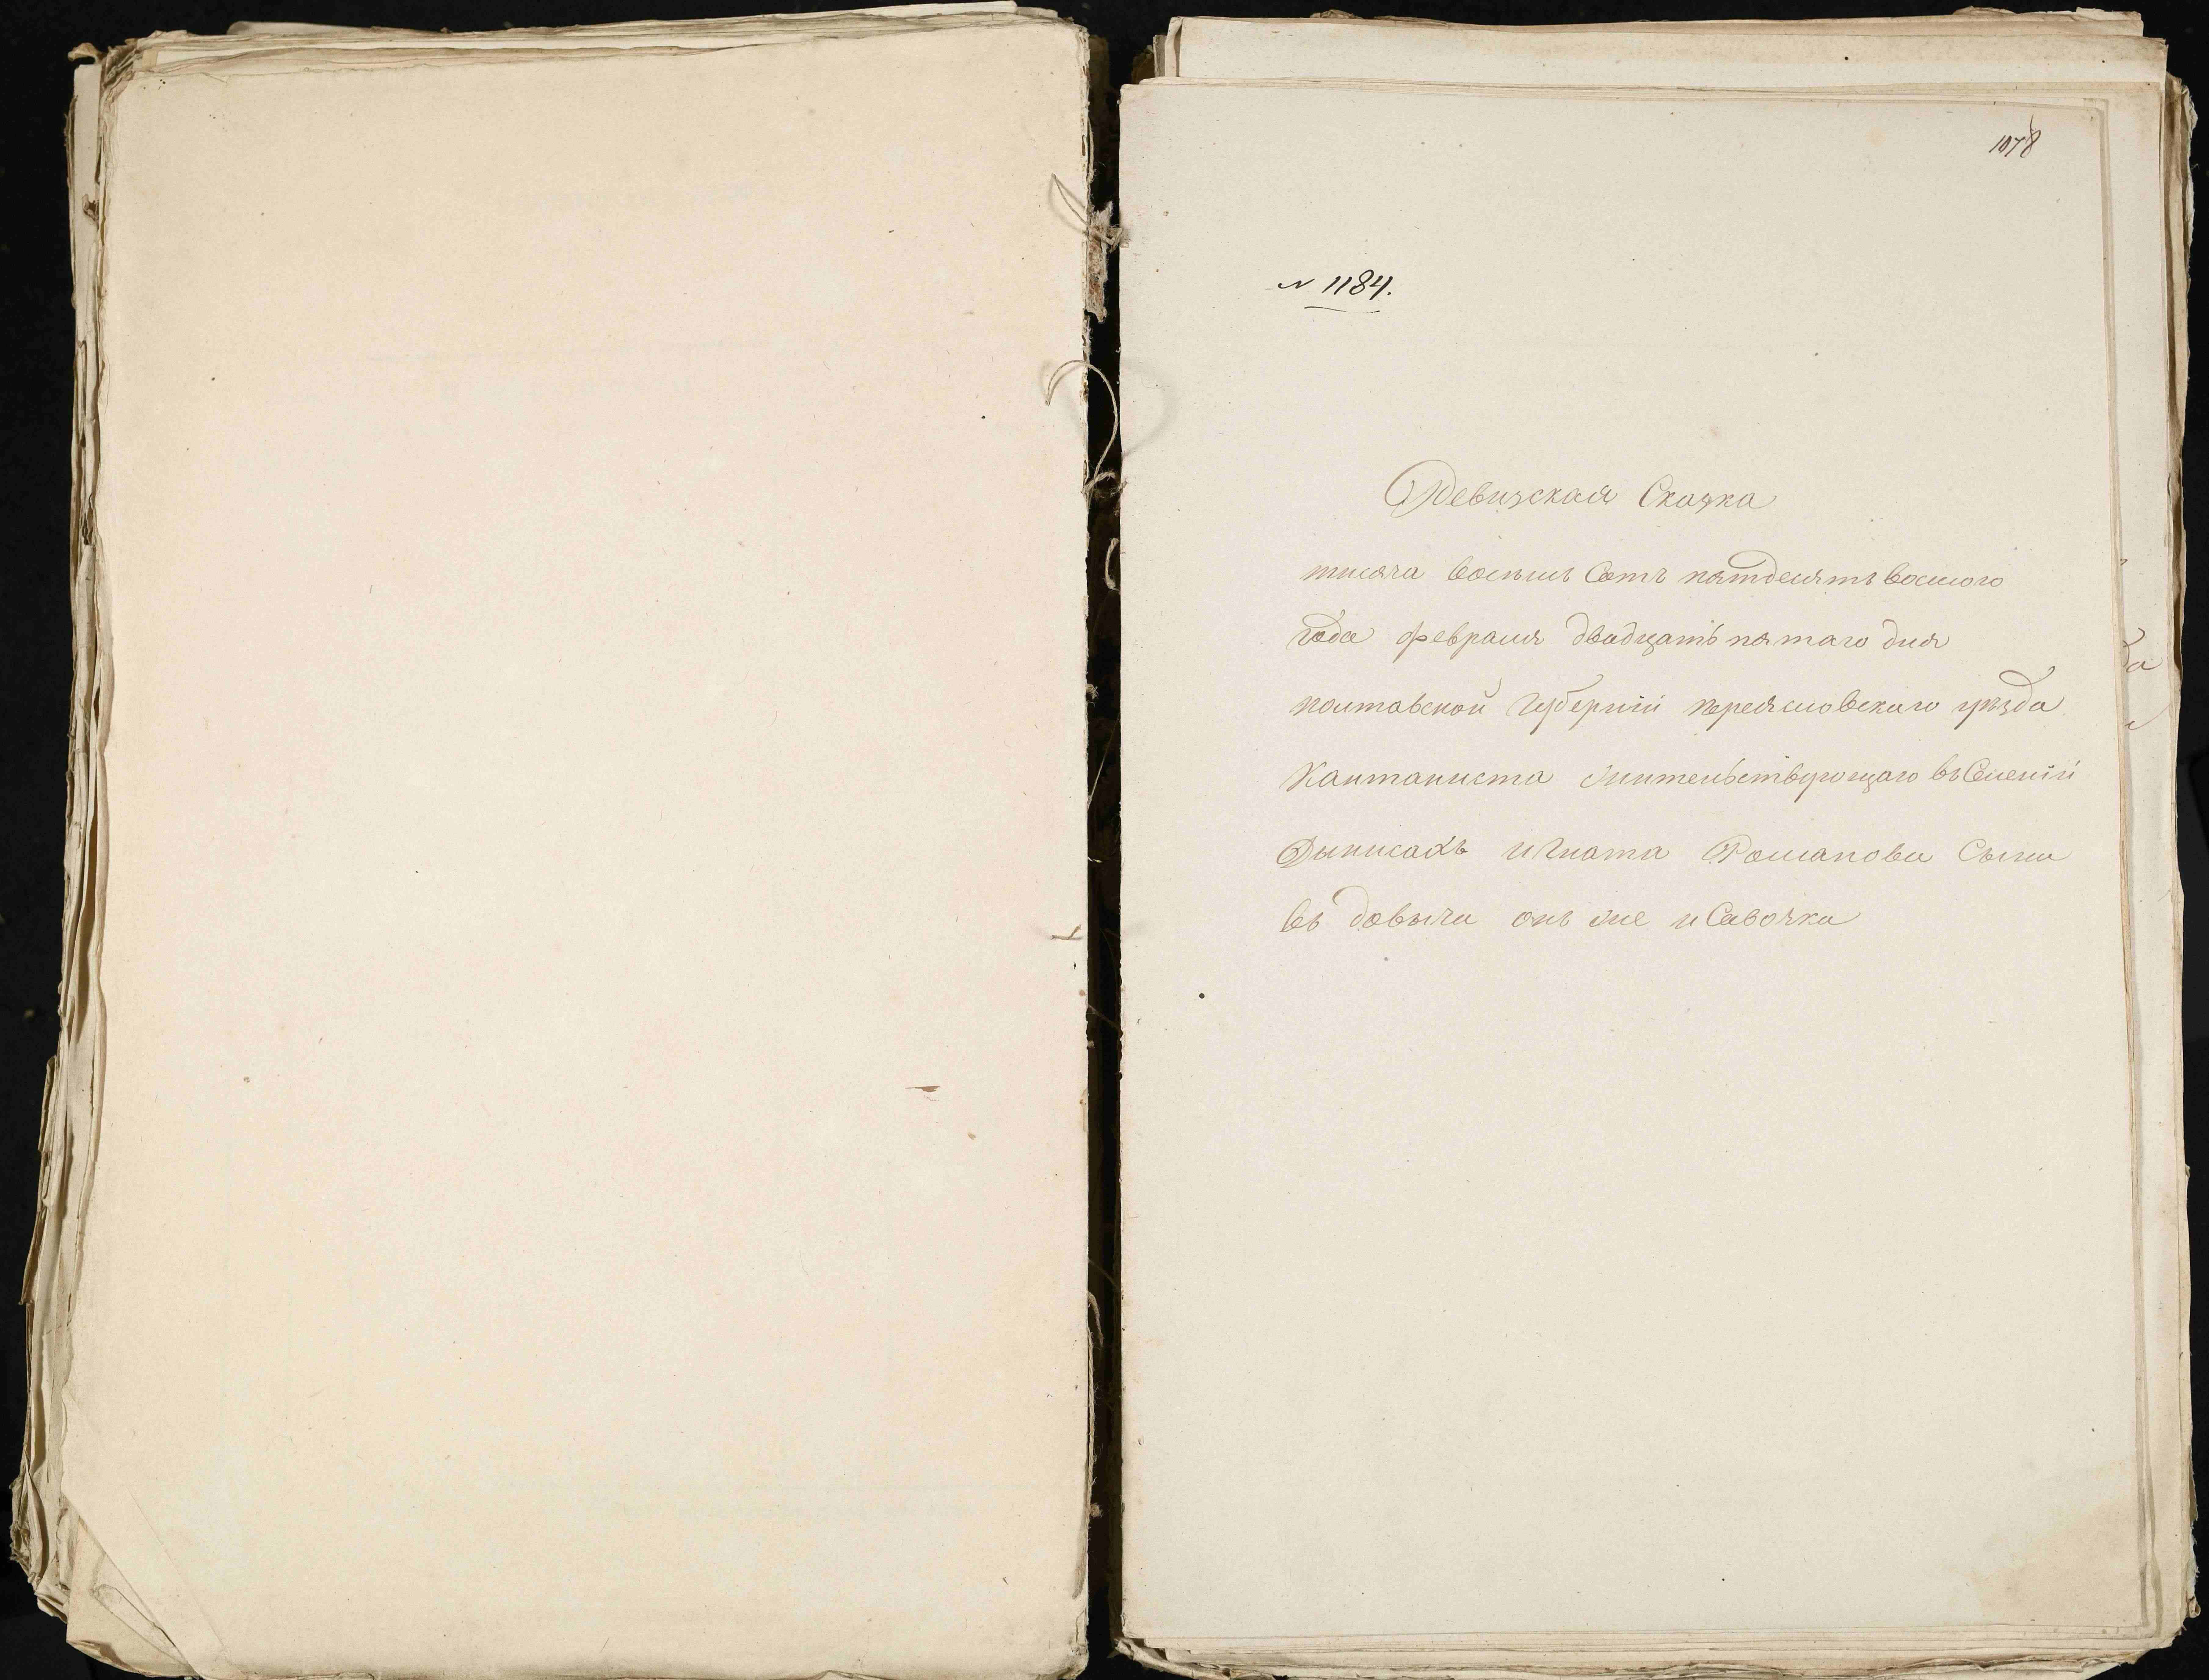 1078
№ 1184.
Ревизская Сказка
тисяча восемь Сотъ пятдесятъ восмого
года февраля двадцать пятаго дня
полтавской Губерніи переясловскаго уѣзда
Кантаниста жительствующаго въ Селеніи
игната Романова Сына
въ довыча онъ же и Савочка